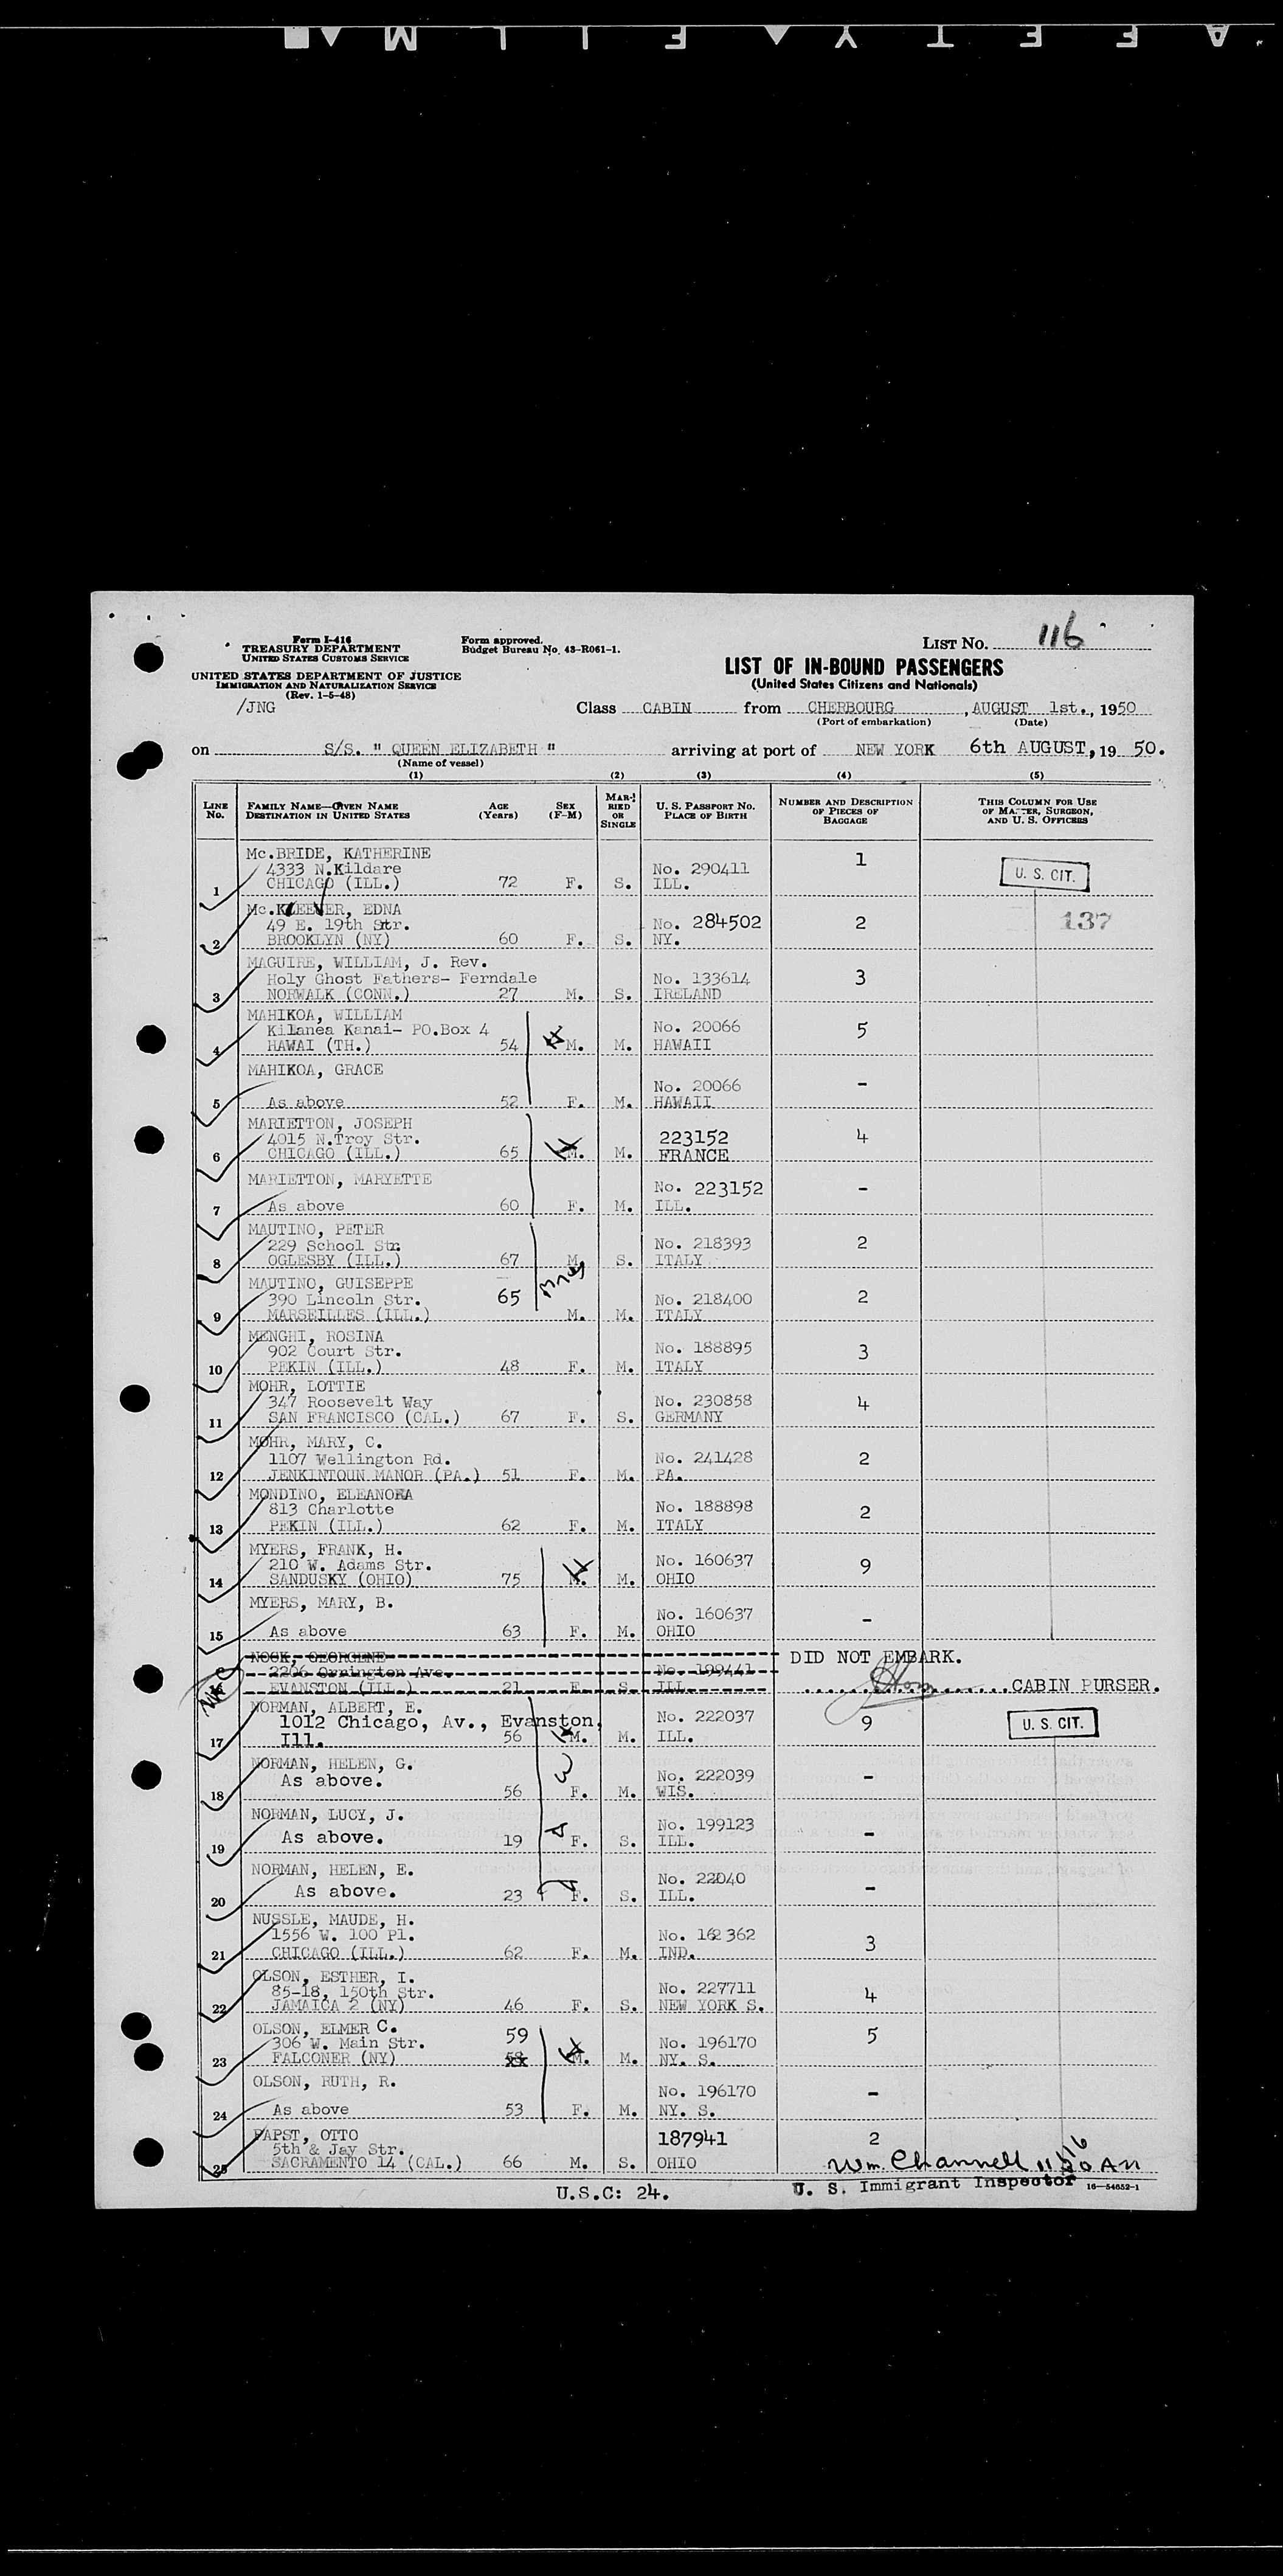 SAFETY FILM
Form I-416
TREASURY DEPARTMENT
UNITED STATES CUSTOMS SERVICE
UNITED STATES DEPARTMENT OF JUSTICE
IMMIGRATION AND NATURALIZATION SERVICE
(Rev. 1-5-48)
/JNG
Form approved.
Budget Bureau No. 43-R061-1.
LIST NO. 116
LIST OF IN-BOUND PASSENGERS
(United States Citizens and Nationals)
Class CABIN from CHERBOURG, AUGUST 1st., 1950
(Port of embarkation) (Date)
on S/S. " QUEEN ELIZABETH " arriving at port of NEW YORK 6th AUGUST, 19 50.
(Name of vessel)
(1) (2) (3) (4) (5)
LINE No. FAMILY NAME—GIVEN NAME DESTINATION IN UNITED STATES AGE (Years) SEX (F-M) MARRIED OR SINGLE U. S. PASSPORT NO. PLACE OF BIRTH NUMBER AND DESCRIPTION OF PIECES OF BAGGAGE THIS COLUMN FOR USE OF MASTER, SURGEON, AND U. S. OFFICERS
Mc.BRIDE, KATHERINE 1
4333 N.Kildare No. 290411 U. S. CIT.
1 CHICAGO (ILL.) 72 F. S. ILL.
Mc.KLEEVER, EDNA 137
49 E. 19th Str. No. 284502 2
2 BROOKLYN (NY) 60 F. S. NY.
MAGUIRE, WILLIAM, J. Rev.
Holy Ghost Fathers- Ferndale No. 133614 3
3 NORWALK (CONN.) 27 M. S. IRELAND
MAHIKOA, WILLIAM
Kilanea Kanai- PO.Box 4 No. 20066 5
4 HAWAI (TH.) 54 M. M. HAWAII
MAHIKOA, GRACE
No. 20066 -
5 As above 52 F. M. HAWAII
MARIETTON, JOSEPH
4015 N.Troy Str. 223152 4
6 CHICAGO (ILL.) 65 M. M. FRANCE
MARIETTON, MARYETTE
No. 223152 -
7 As above 60 F. M. ILL.
MAUTINO, PETER
229 School Str. No. 218393 2
8 OGLESBY (ILL.) 67 M. S. ITALY
MAUTINO, GUISEPPE
390 Lincoln Str. 65 No. 218400 2
9 MARSEILLES (ILL.) M. M. ITALY
MENGHI, ROSINA
902 Court Str. No. 188895 3
10 PEKIN (ILL.) 48 F. M. ITALY
MOHR, LOTTIE
347 Roosevelt Way No. 230858 4
11 SAN FRANCISCO (CAL.) 67 F. S. GERMANY
MOHR, MARY, C.
1107 Wellington Rd. No. 241428 2
12 JENKINTOUN MANOR (PA.) 51 F. M. PA.
MONDINO, ELEANORA
813 Charlotte No. 188898 2
13 PEKIN (ILL.) 62 F. M. ITALY
MYERS, FRANK, H.
210 W. Adams Str. No. 160637 9
14 SANDUSKY (OHIO) 75 M. M. OHIO
MYERS, MARY, B.
No. 160637 -
15 As above 63 F. M. OHIO
NOCK, GEORGENE DID NOT EMBARK.
2206 Orrington Ave. No. 199441
EVANSTON (ILL.) 21 F. S. ILL. CABIN PURSER.
NORMAN, ALBERT, E.
1012 Chicago, Av., Evanston, No. 222037 9 U. S. CIT.
17 Ill. 56 M. M. ILL.
NORMAN, HELEN, G.
As above. No. 222039 -
18 56 F. M. WIS.
NORMAN, LUCY, J.
As above. No. 199123 -
19 19 F. S. ILL.
NORMAN, HELEN, E.
As above. No. 22040 -
20 23 F. S. ILL.
NUSSLE, MAUDE, H.
1556 W. 100 Pl. No. 162362 3
21 CHICAGO (ILL.) 62 F. M. IND.
OLSON, ESTHER, I.
85-18, 150th Str. No. 227711 4
22 JAMAICA 2 (NY) 46 F. S. NEW YORK S.
OLSON, ELMER C. 59
306 W. Main Str. No. 196170 5
23 FALCONER (NY) 58 M. M. NY. S.
OLSON, RUTH, R.
No. 196170 -
24 As above 53 F. M. NY. S.
PAPST, OTTO 187941 2
5th & Jay Str.
25 SACRAMENTO 14 (CAL.) 66 M. S. OHIO
Wm. Channell
U.S.C: 24. U. S. Immigrant Inspector 16—54652-1